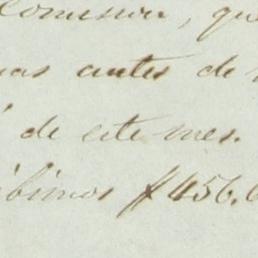 Comision, que
mas antes de
de este mes.
ibimos $ 456.6